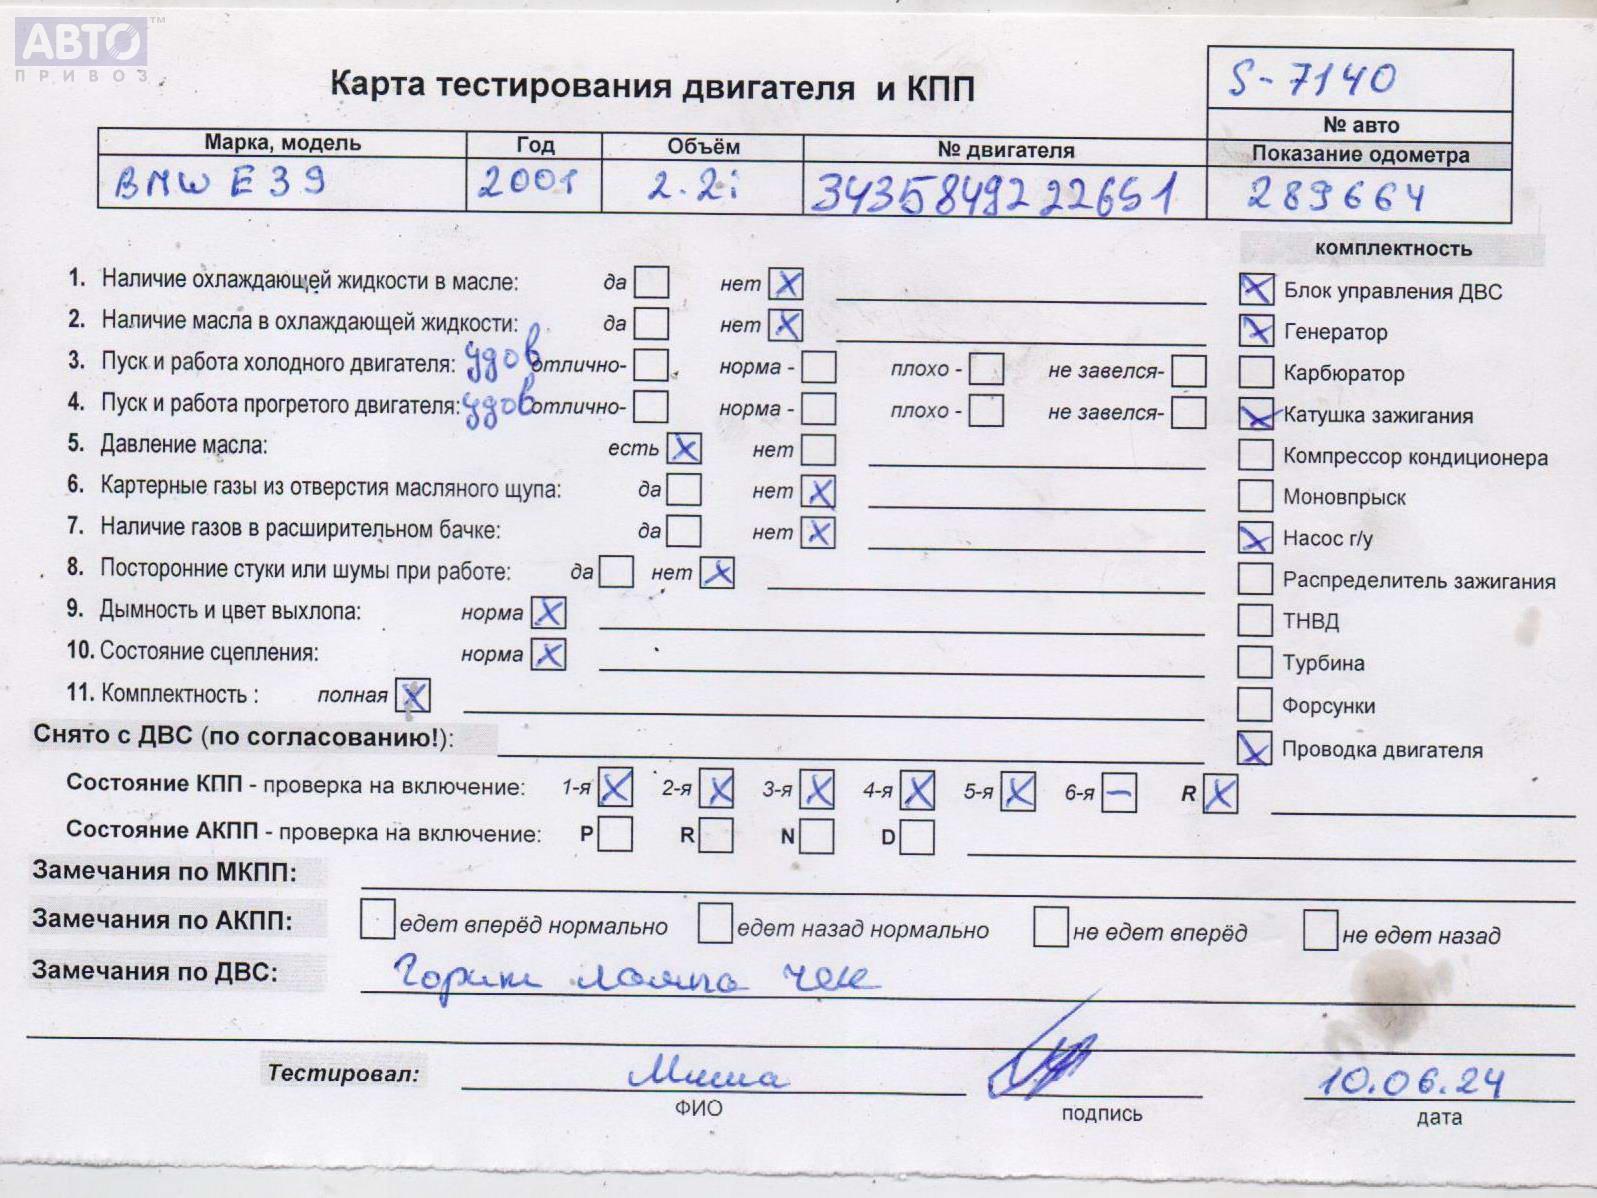 АВТО™
ПРИВОЗ
Карта тестирования двигателя и КПП
S-7140
№ авто
Марка, модель Год Объём № двигателя Показание одометра
BMW E39 2001 2.2i 34358492 22651 289664
комплектность
1. Наличие охлаждающей жидкости в масле: да нет X
2. Наличие масла в охлаждающей жидкости: да нет X
3. Пуск и работа холодного двигателя: удов отлично- норма - плохо - не завелся-
4. Пуск и работа прогретого двигателя: удов отлично- норма - плохо - не завелся-
5. Давление масла: есть X нет
6. Картерные газы из отверстия масляного щупа: да нет X
7. Наличие газов в расширительном бачке: да нет X
8. Посторонние стуки или шумы при работе: да нет X
9. Дымность и цвет выхлопа: норма X
10. Состояние сцепления: норма X
11. Комплектность : полная X
X Блок управления ДВС
X Генератор
Карбюратор
X Катушка зажигания
Компрессор кондиционера
Моновпрыск
X Насос г/у
Распределитель зажигания
ТНВД
Турбина
Форсунки
X Проводка двигателя
Снято с ДВС (по согласованию!):
Состояние КПП - проверка на включение: 1-я X 2-я X 3-я X 4-я X 5-я X 6-я – R X
Состояние АКПП - проверка на включение: P R N D
Замечания по МКПП:
Замечания по АКПП: едет вперёд нормально едет назад нормально не едет вперёд не едет назад
Замечания по ДВС: Горит лампа чек
Тестировал: Миша 10.06.24
ФИО подпись дата